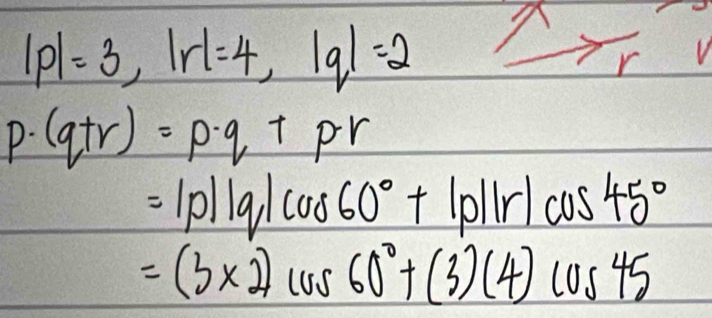 |p| = 3, |r| = 4, |q| = 2
r
p·(q+r) = p·q + p·r
= |p||q| cos 60° + |p||r| cos 45°
= (3×2) cos 60° + (3)(4) cos 45